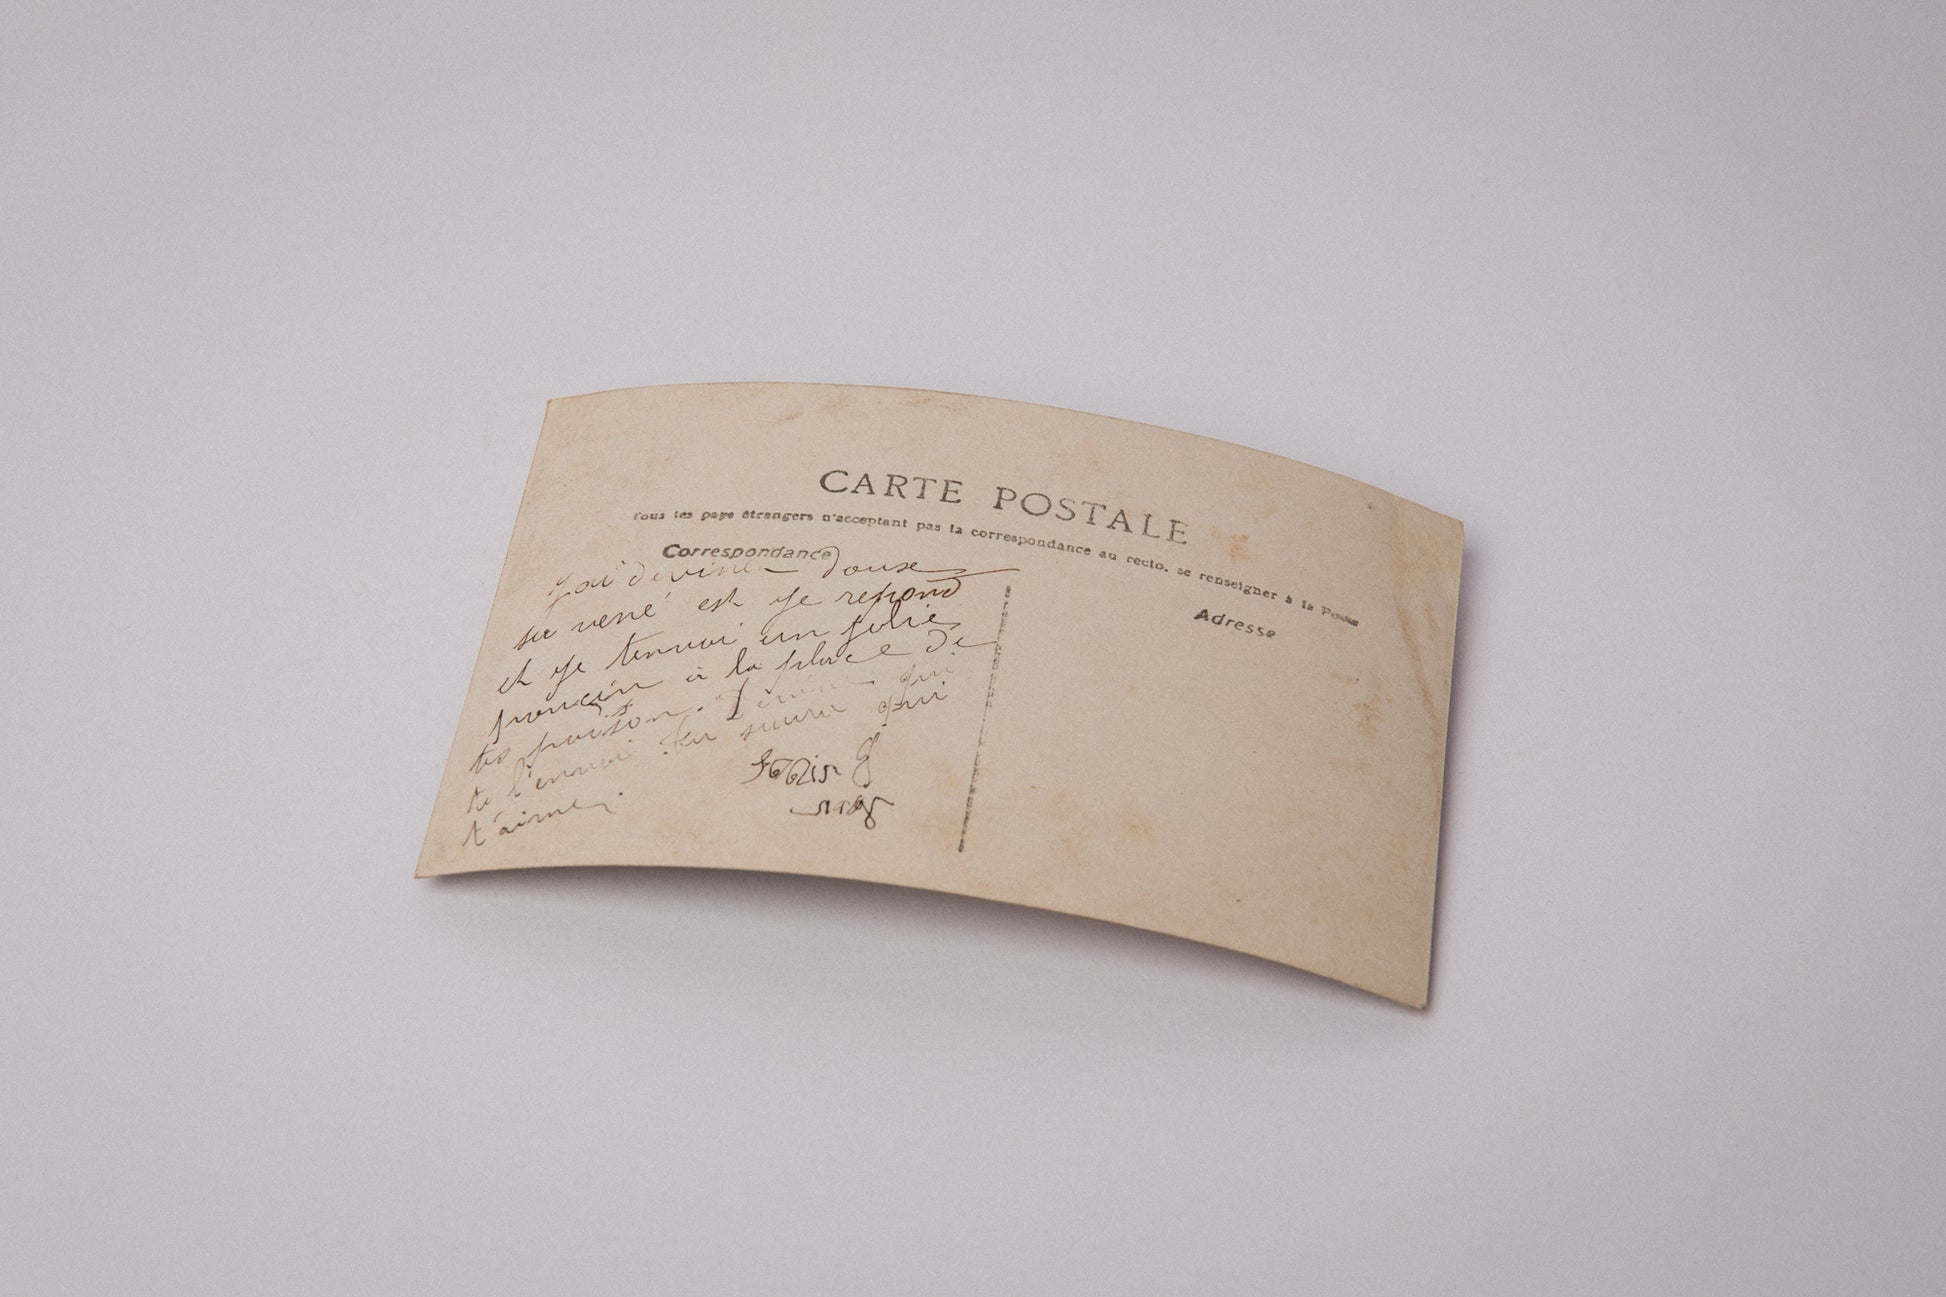 CARTE POSTALE
Tous les pays étrangers n'acceptant pas la correspondance au recto, se renseigner à la Poste
Correspondance
Adresse
J'ai devine douse
sa vené est je repond
et je tenvoi un jolie
à la place de
tes poison. Devine qui
te l'envoi tu saura qui
t'aime.